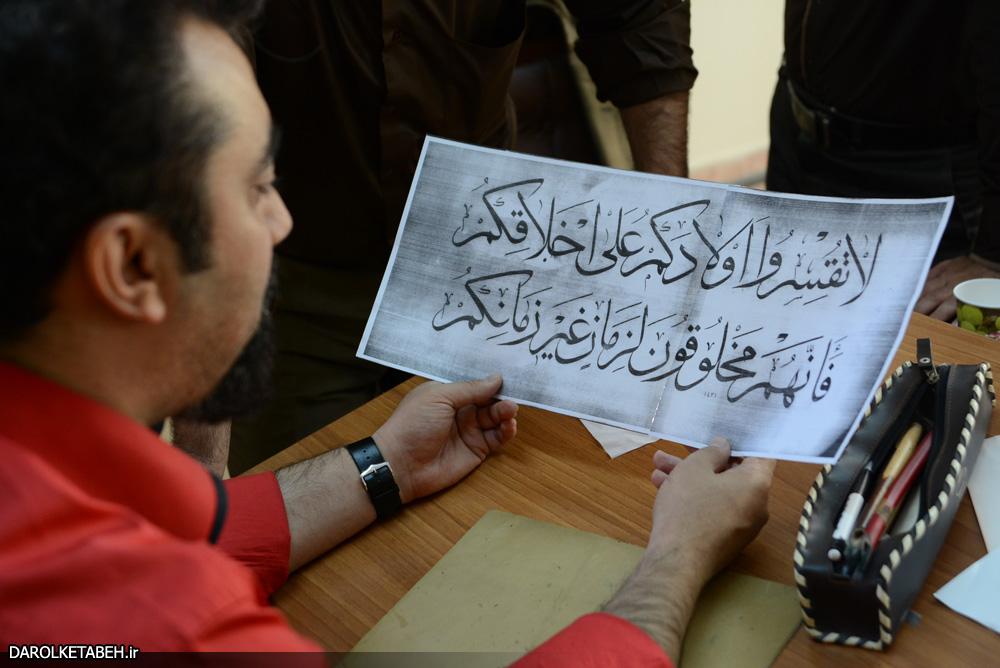 لا تقسروا اولادكم على اخلاقكم
فانهم مخلوقون لزمان غير زمانكم
١٤٣١
DAROLKETABEH.ir